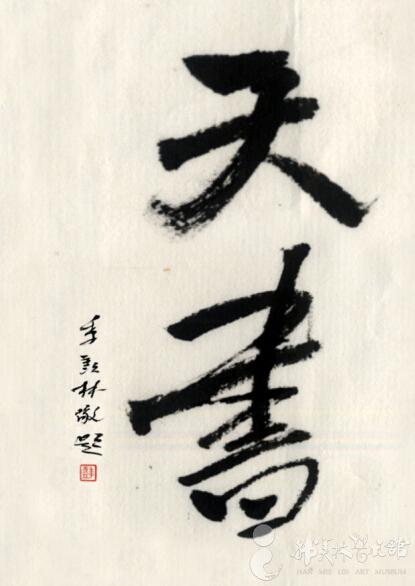 天書
季羡林敬題
韩美林艺术馆
HAN MEI LIN ART MUSEUM